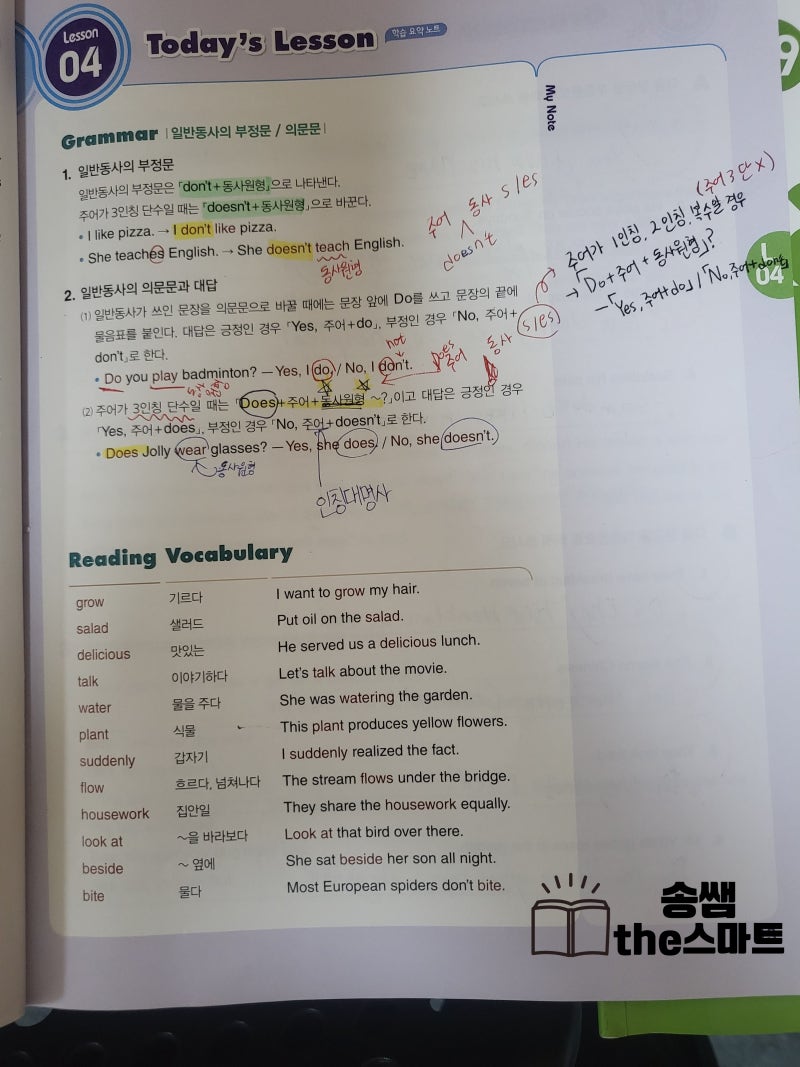 Lesson
04
Today's Lesson
학습 요약 노트
My Note
Grammar | 일반동사의 부정문 / 의문문 |
1. 일반동사의 부정문
일반동사의 부정문은 「don't + 동사원형」으로 나타낸다.
주어가 3인칭 단수일 때는 「doesn't + 동사원형」으로 바꾼다.
• I like pizza. → I don't like pizza.
• She teaches English. → She doesn't teach English.
동사원형
주어 동사 s/es
doesn't
2. 일반동사의 의문문과 대답
(1) 일반동사가 쓰인 문장을 의문문으로 바꿀 때에는 문장 앞에 Do를 쓰고 문장의 끝에
물음표를 붙인다. 대답은 긍정인 경우 「Yes, 주어+do」, 부정인 경우 「No, 주어+
don't」로 한다.
not
• Do you play badminton? – Yes, I do. / No, I don't.
Does 주어 동사
s/es
(2) 주어가 3인칭 단수일 때는 「Does+주어+동사원형 ~?」이고 대답은 긍정인 경우
「Yes, 주어+does」, 부정인 경우 「No, 주어+doesn't」로 한다.
• Does Jolly wear glasses? – Yes, she does. / No, she doesn't.
동사원형
인칭대명사
(주어 3단 X)
주어가 1인칭, 2인칭, 복수일 경우
→ 「Do + 주어 + 동사원형」?
– 「Yes, 주어+do」 / 「No, 주어+don't」
L
04
9
Reading Vocabulary
grow 기르다 I want to grow my hair.
salad 샐러드 Put oil on the salad.
delicious 맛있는 He served us a delicious lunch.
talk 이야기하다 Let's talk about the movie.
water 물을 주다 She was watering the garden.
plant 식물 This plant produces yellow flowers.
suddenly 갑자기 I suddenly realized the fact.
flow 흐르다, 넘쳐나다 The stream flows under the bridge.
housework 집안일 They share the housework equally.
look at ~을 바라보다 Look at that bird over there.
beside ~ 옆에 She sat beside her son all night.
bite 물다 Most European spiders don't bite.
송쌤
the스마트